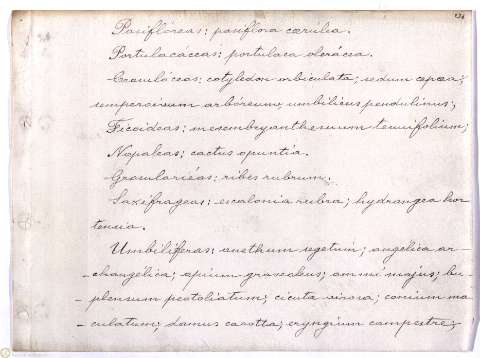 Pasiflóreas: pasiflora cærúlia.
Portulacáceas: portulaca olerácia.
Crasuláceas: cotyledon orbiculata; sedum cepæa;
sempervivum arbóreum; umbilicus pendulinus;
Ficoideas: mesembryanthemum tenuifolium;
Nopaleas: cactus opuntia.
Grosularieas: ribes rubrum.
Saxéfrageas: escalonia rubra; hydrangea hor
tensia.
Umbilíferas: anethum segetum; angelica ar-
-changélica; apium graveolens; ammi majus; bu-
-pleurum perfoliatum; cicuta virosa; conium ma
-culatum; daucus carotta; eryngium campestre;